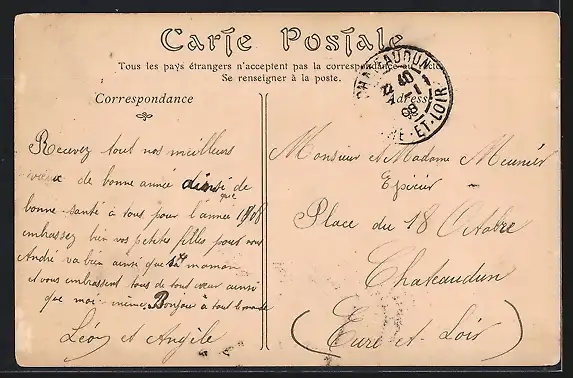 Carte Postale
Tous les pays étrangers n'acceptent pas la correspondance au recto
Se renseigner à la poste.
Correspondance
Adresse
CHATEAUDUN
EURE-ET-LOIR
Recevez tout nos meilleurs
vœux de bonne année ainsi que de
bonne santé à tous pour l'année 1908
embrassez bien vos petites filles pour nous
André va bien ainsi que sa maman
et vous embrassent tous de tout cœur ainsi
que moi-même. Bonjour à tout le monde
Léon et Angèle
Monsieur et Madame Meunier
Epicier
Place du 18 Octobre
Chateaudun
(Eure et Loir)